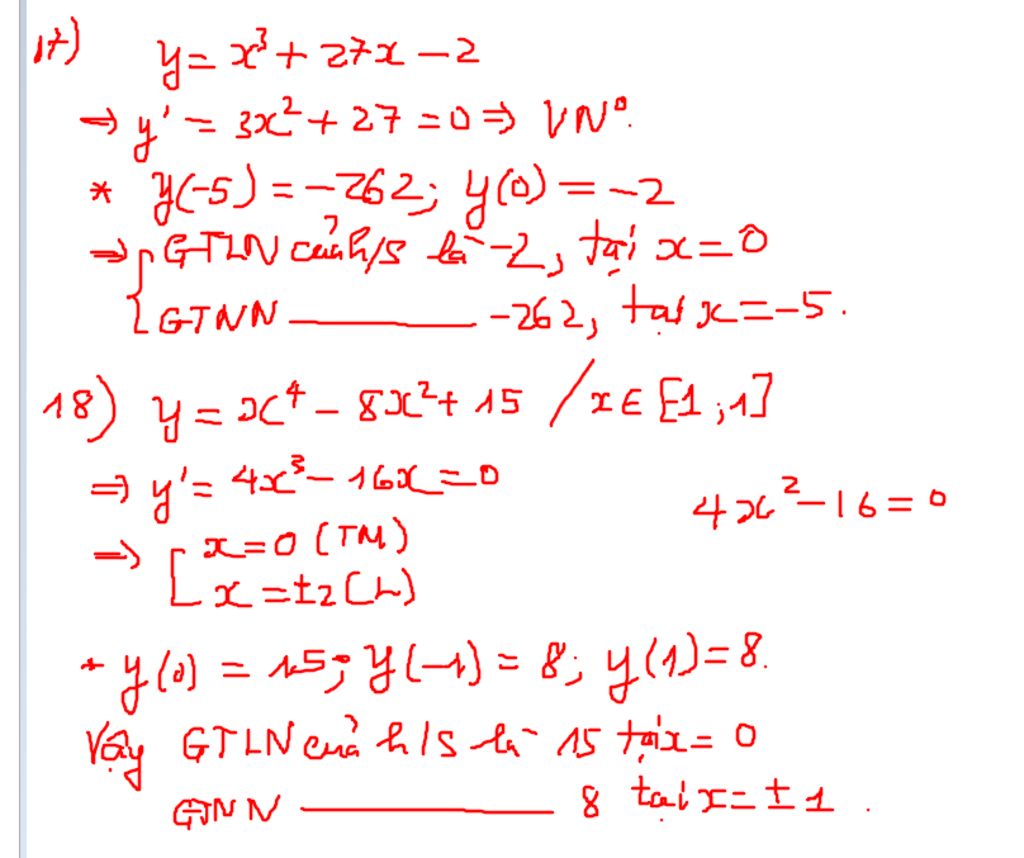 17) y = x³ + 27x - 2
⇒ y' = 3x² + 27 = 0 ⇒ VN⁰.
* y(-5) = -262; y(0) = -2
⇒ { GTLN của h/s là -2, tại x = 0
GTNN ——— -262, tại x = -5.
18) y = x⁴ - 8x² + 15 / x ∈ [-1; 1]
⇒ y' = 4x³ - 16x = 0
4x² - 16 = 0
⇒ [ x = 0 (TM)
x = ±2 (L)
* y(0) = 15; y(-1) = 8; y(1) = 8.
Vậy GTLN của h/s là 15 tại x = 0
GTNN ——— 8 tại x = ±1.